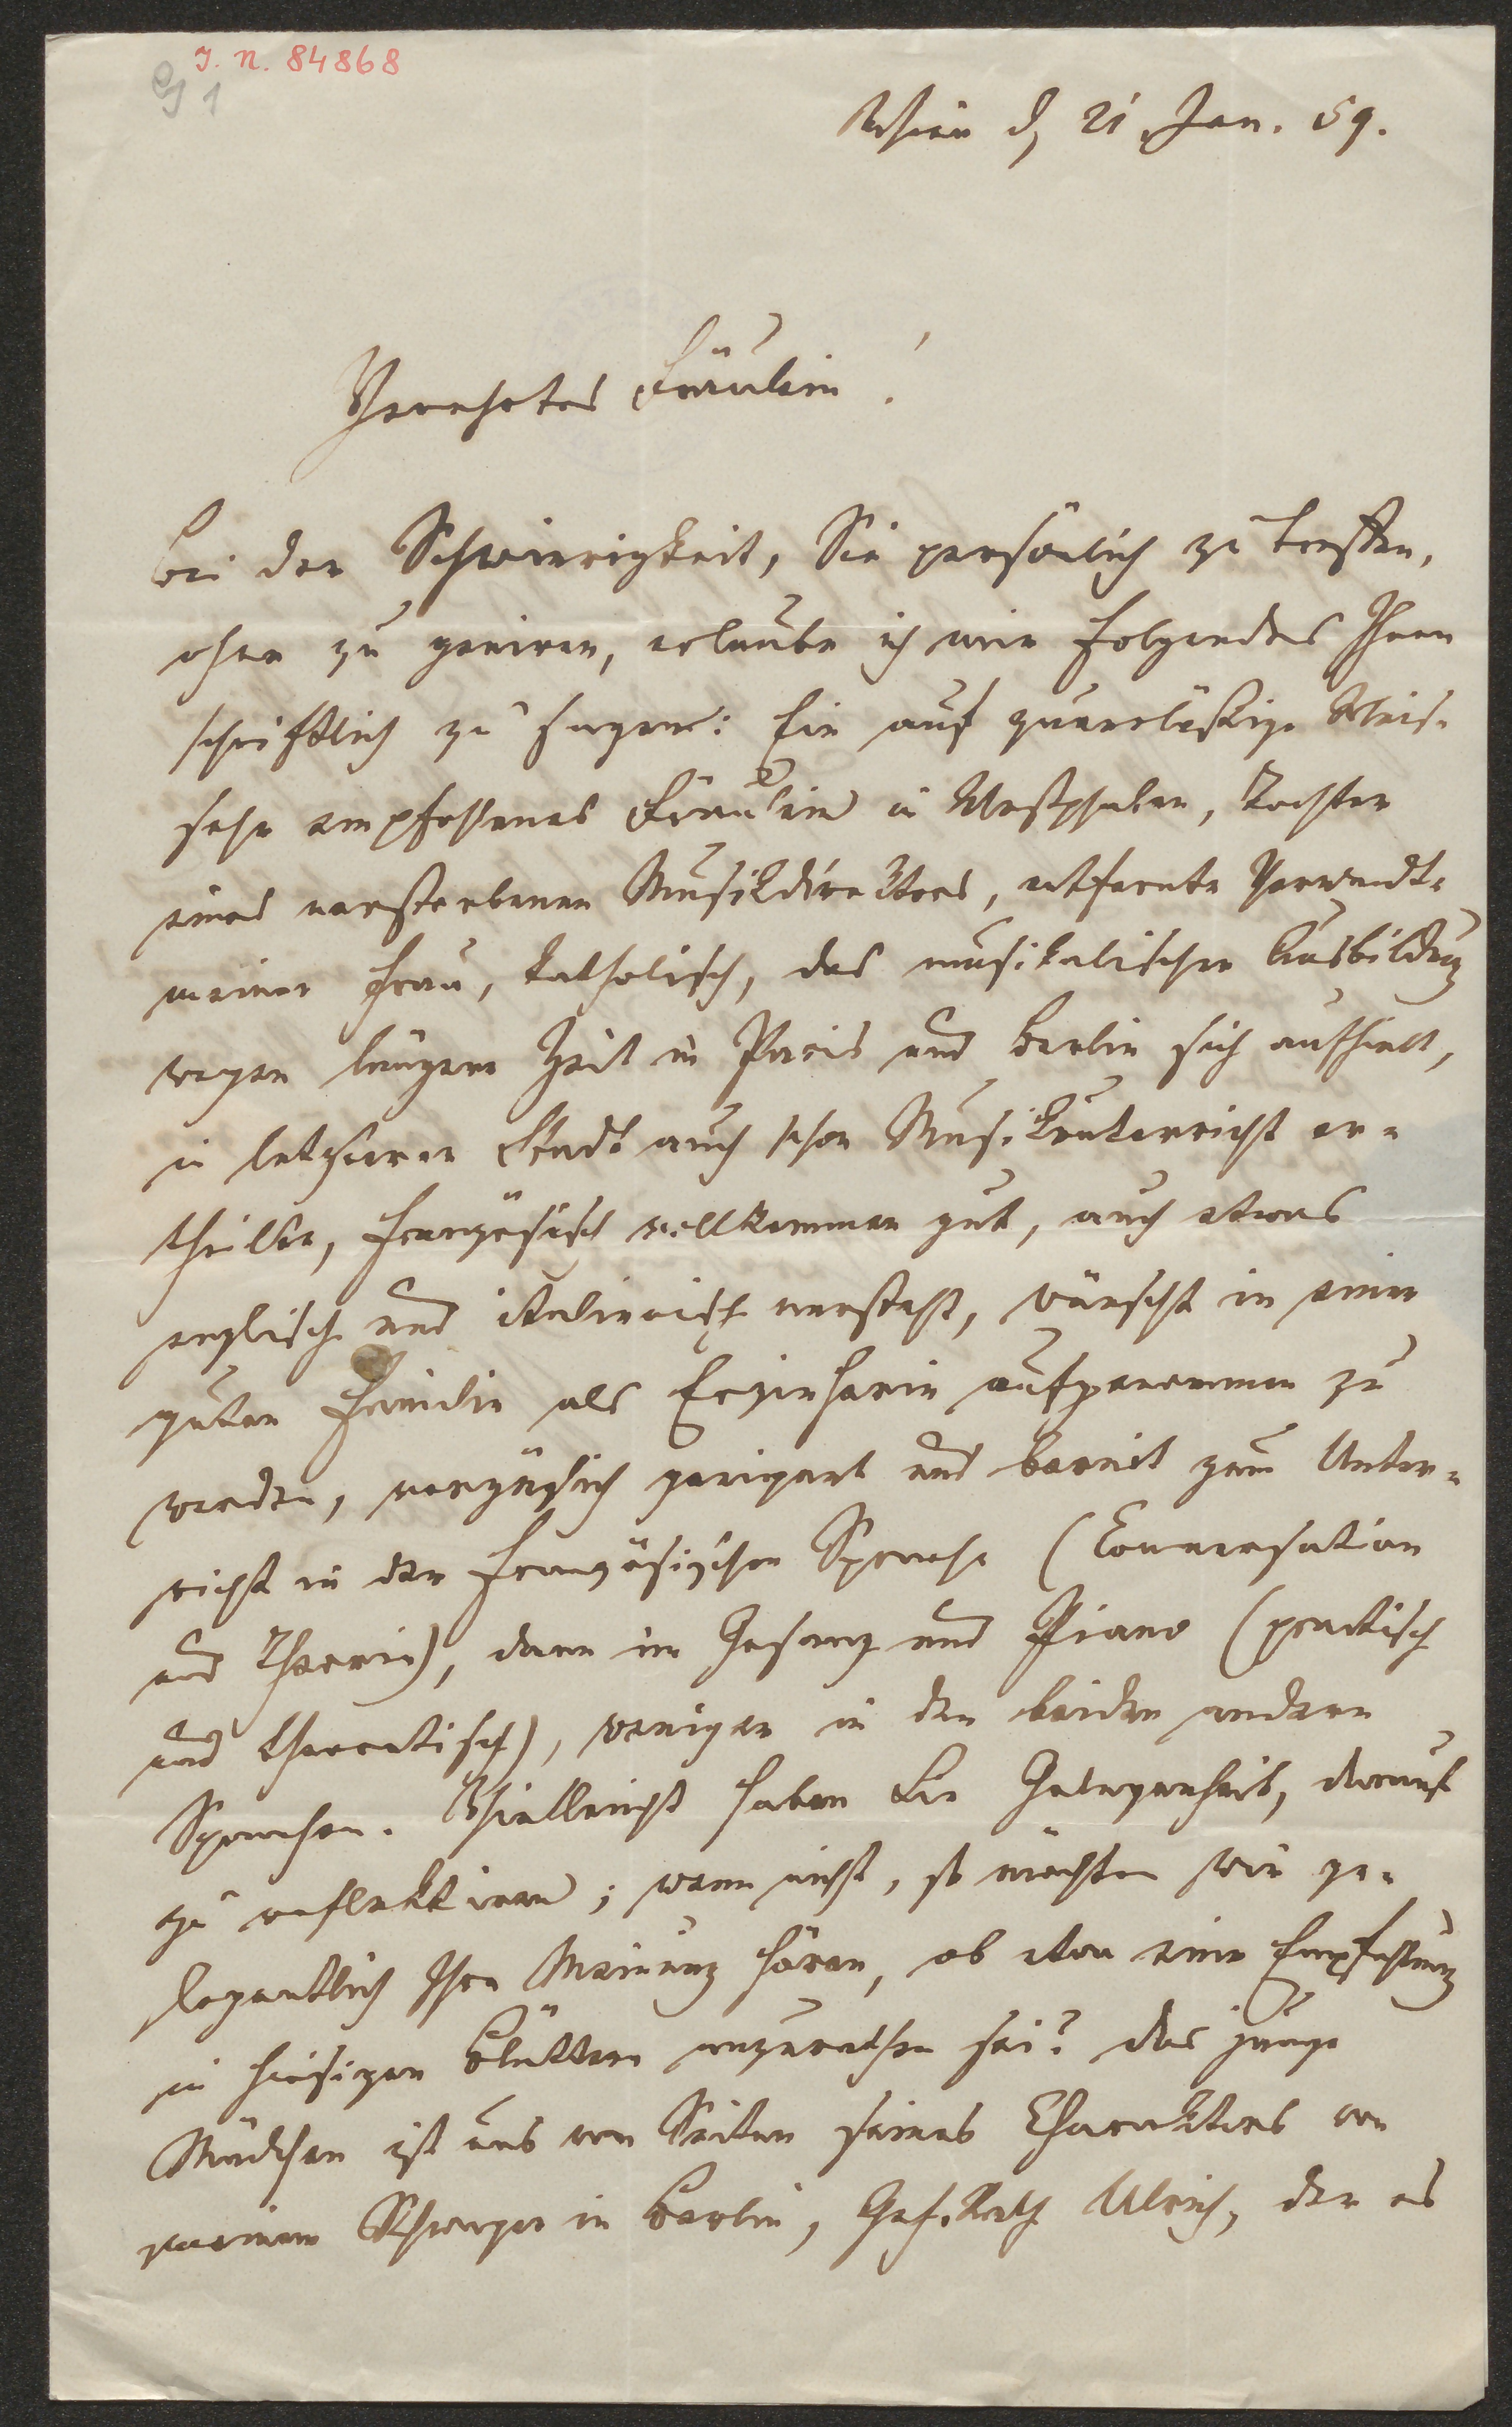 J. N. 84868
91
Wien d. 21 Jan. 59.
Verehrtes Fräulein!
Bei der Schwierigkeit, Sie persönlich zu treffen,
ohne zu geniren, erlaube ich mir Folgendes Ihnen
schriftlich zu sagen: Ein auf zuverläßige Weise
sehr empfohlenes Fräulein in Westphalen, Tochter
eines verstorbenen Musikdirektors, entfernte Verwandte
meiner Frau, katholisch, das musikalischer Ausbildung
wegen längere Zeit in Paris und Berlin sich aufhielt,
in letzterer Stadt auch schon Musikunterricht er-
theilte, französisch vollkommen gut, auch etwas
englisch und italienisch versteht, wünscht in einer
guten Familie als Erzieherin aufgenommen zu
werden, vorzüglich geeignet und bereit zum Unter-
richt in der französischen Sprache (Conversation
und Theorie), dann im Gesang und Piano (practisch
und theoretisch), weniger in den beiden andern
Sprachen. Vielleicht haben Sie Gelegenheit, darauf
zu reflektiren; wenn nicht, so möchten wir ge-
legentlich Ihre Meinung hören, ob etwa eine Empfehlung
in hiesigen Blättern anzurathen sei? Das junge
Mädchen ist uns von Seiten seines Charakters von
meinem Schwager in Berlin, Geh. Rath Ulrich, der es